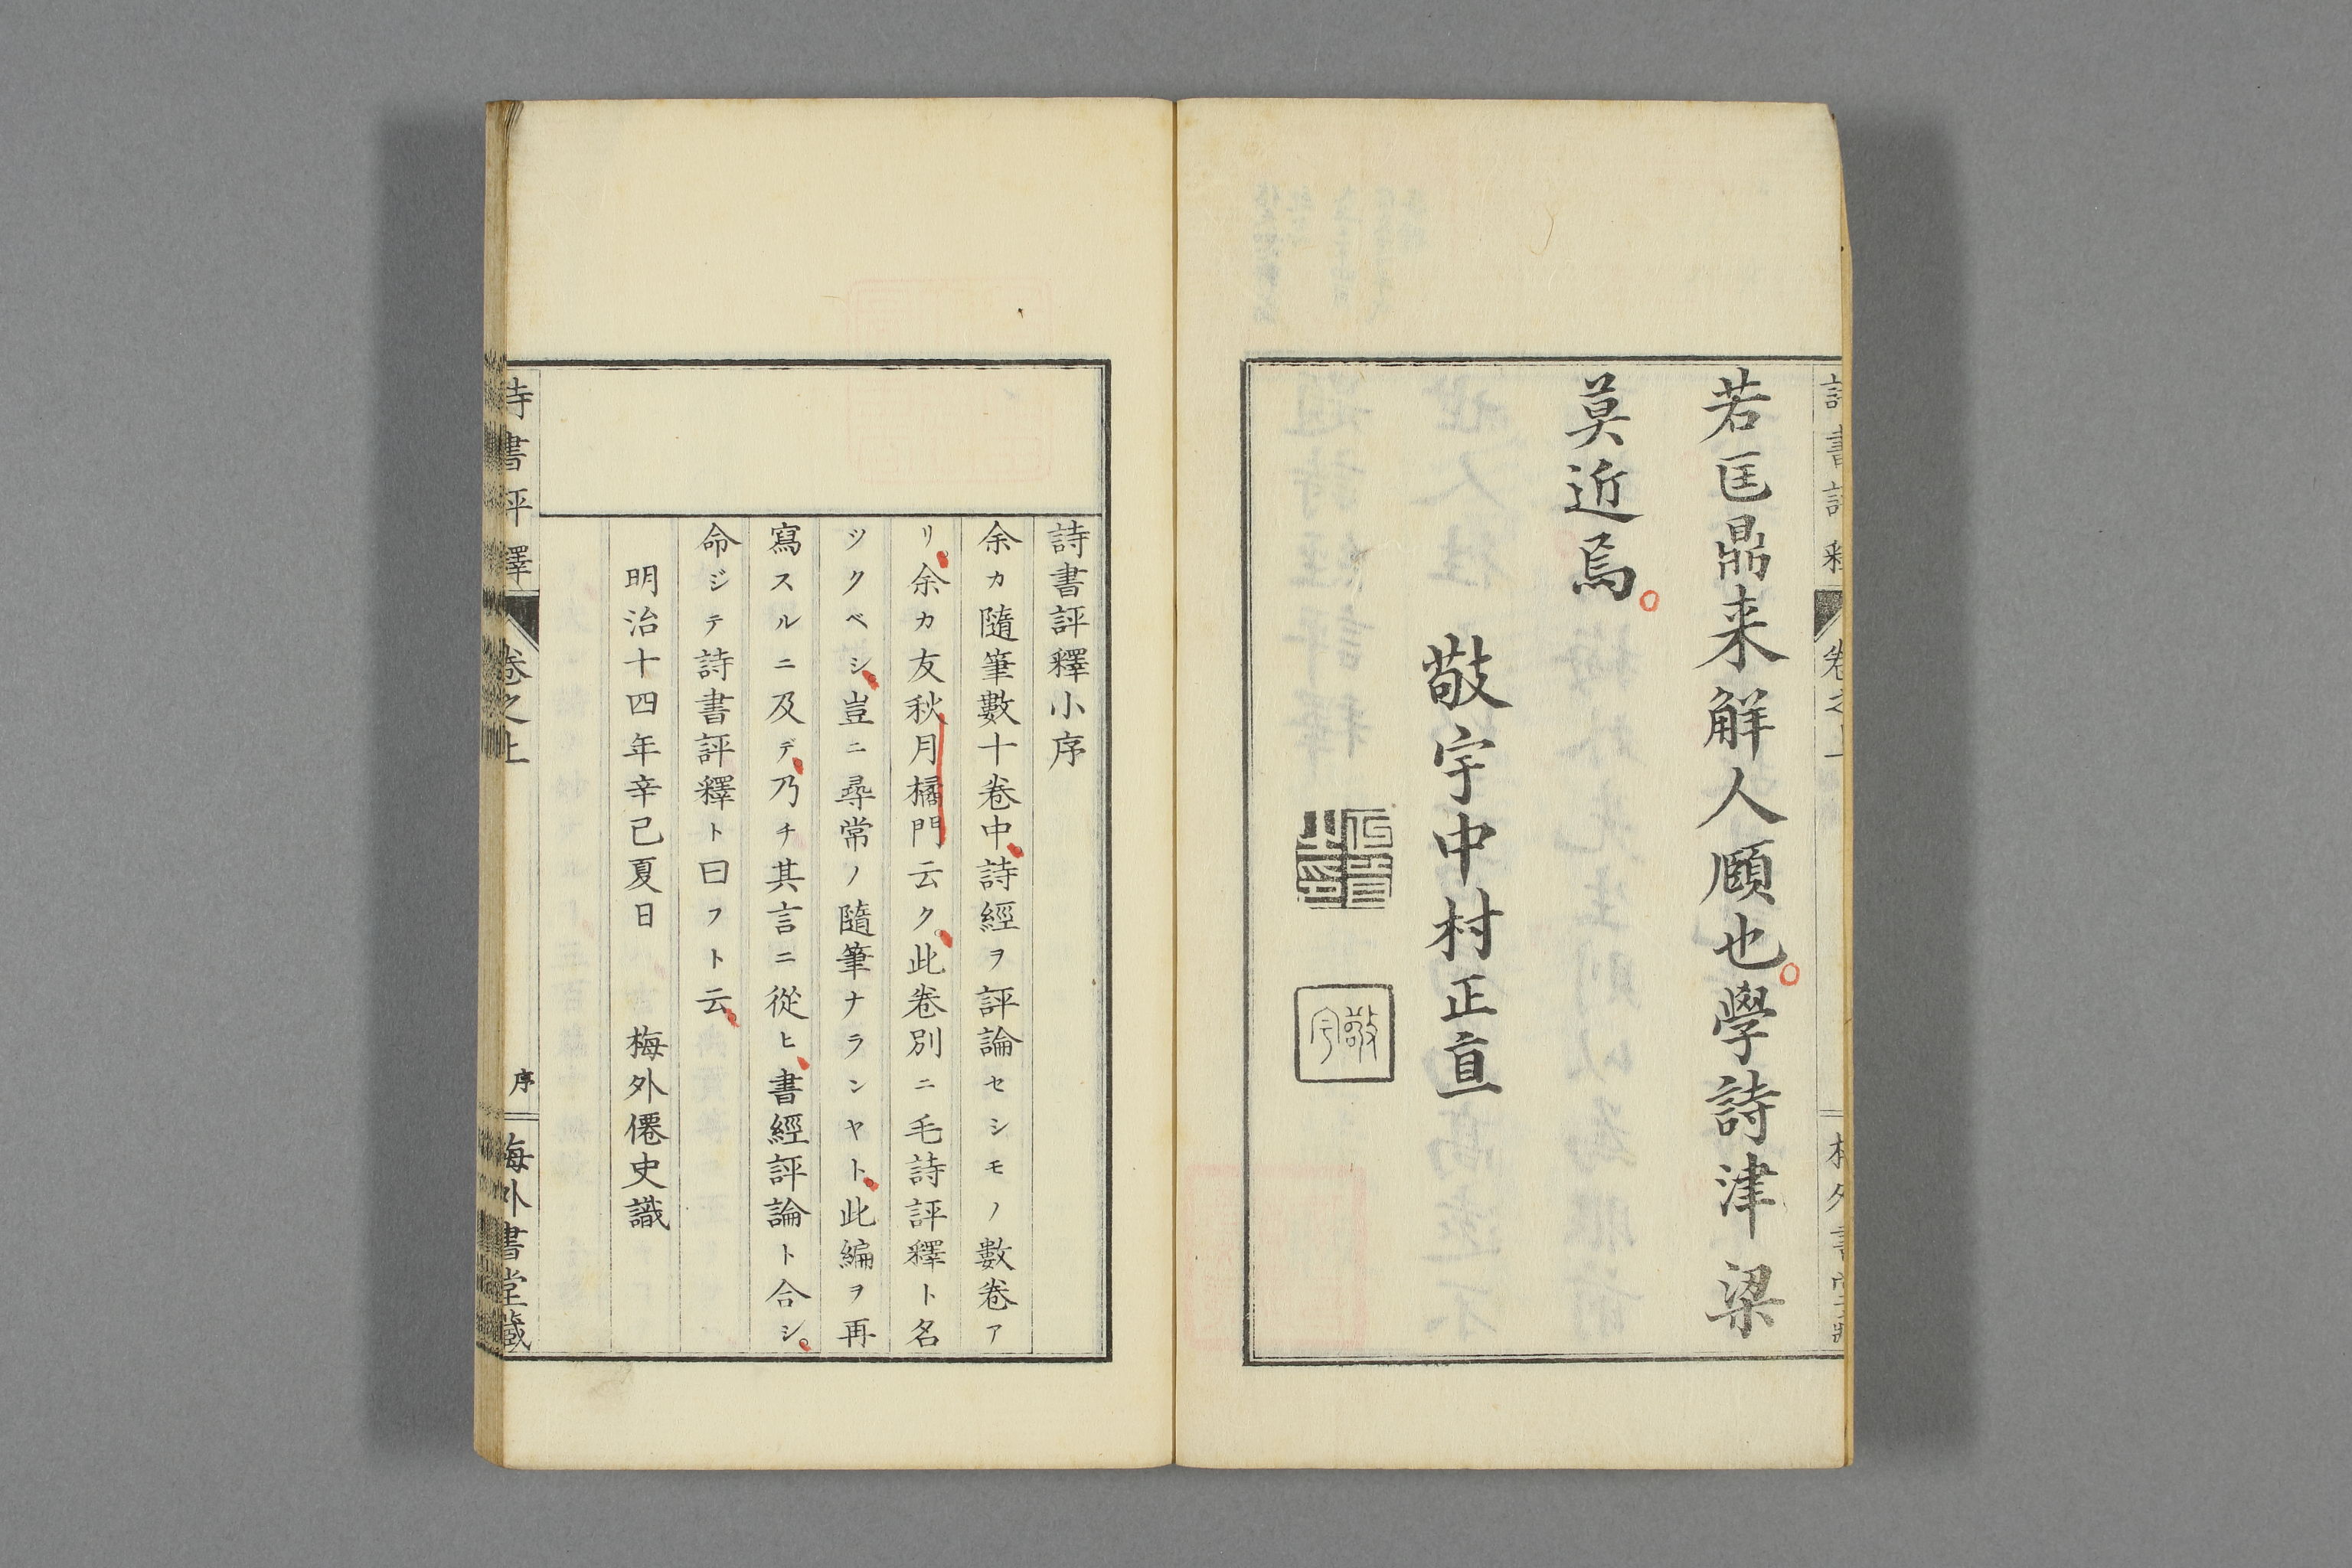 若匡鼎来解人頤也學詩津梁
莫近焉
敬宇中村正直
敬宇
詩書評釋小序
余カ隨筆數十卷中詩經ヲ評論セシモノ數卷ア
リ余カ友秋月橘門云ク此卷別ニ毛詩評釋ト名
ツクベシ豈ニ尋常ノ隨筆ナランヤト此編ヲ再
寫スルニ及デ乃チ其言ニ從ヒ書經評論ト合シ
命ジテ詩書評釋ト曰フト云
明治十四年辛巳夏日 梅外僊史識
詩書評釋 卷之上 序 梅外書堂藏